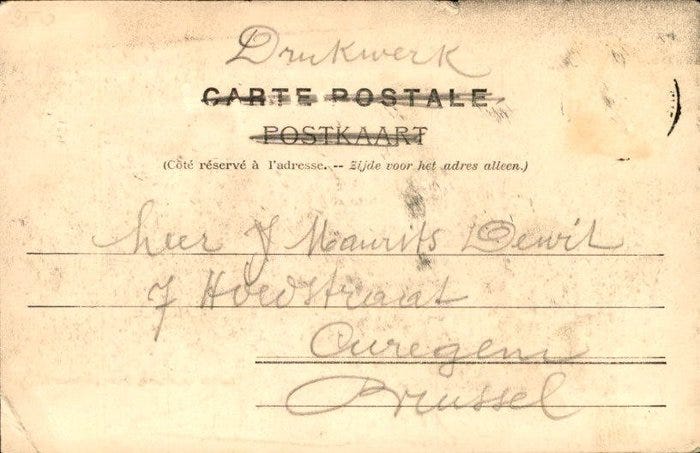 Drukwerk
CARTE POSTALE
POSTKAART
(Côté réservé à l'adresse. -- Zijde voor het adres alleen.)
heer J Maurits Dewit
7 Hoedstraat
Curegem
Brussel